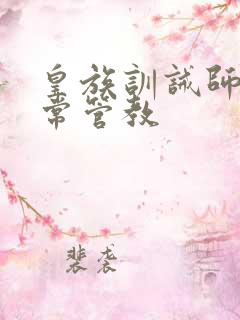 皇族訓誡師日
常管教
裴袭